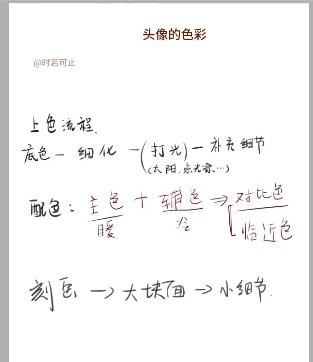 头像的色彩
@时若可止
上色流程.
底色－细化－(打光)－补充细节
(太阳.点光源…)
配色: 主色 + 辅色 ⇒ 对比色
暖 冷 临近色
刻画 → 大块面 → 小细节.